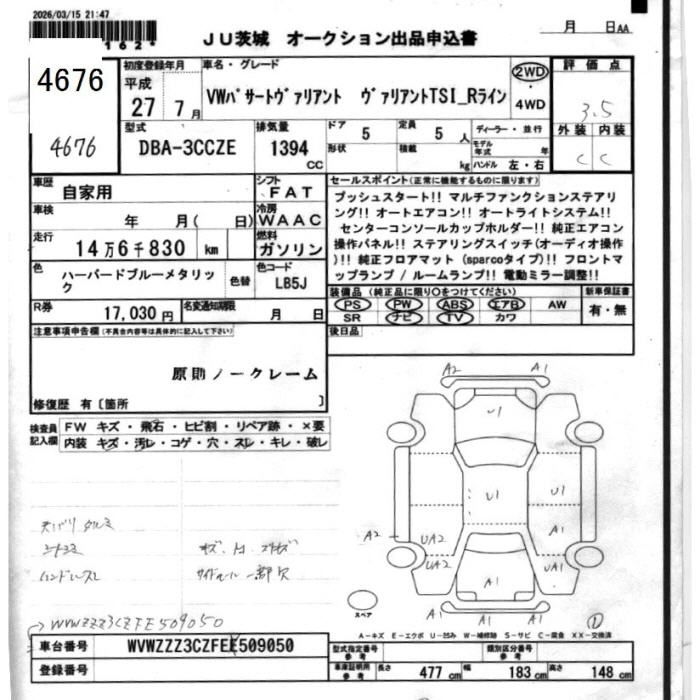 2026/03/15 21:47
162*
JU茨城 オークション出品申込書
月 日AA
4676
4676
初度登録年月
平成
27 7月
車名・グレード
VWパサートヴァリアント ヴァリアントTSI_Rライン
2WD
・
4WD
評価点
3.5
外装 内装
C C
型式
DBA-3CCZE
排気量
1394
CC
ドア 5
形状
定員 5 人
積載 kg
ディーラー・並行
モデル年式 年
ハンドル 左・右
車歴
自家用
シフト
FAT
車検 年 月( 日)
冷房
WAAC
走行
14万6千830 km
燃料
ガソリン
セールスポイント(正常に機能するものに限ります)
プッシュスタート!! マルチファンクションステアリ
ング!! オートエアコン!! オートライトシステム!!
センターコンソールカップホルダー!! 純正エアコン
操作パネル!! ステアリングスイッチ(オーディオ操作
)!! 純正フロアマット (sparcoタイプ)!! フロントマ
ップランプ / ルームランプ!! 電動ミラー調整!!
色
ハーバードブルーメタリッ
ク
色替
色コード
LB5J
R券
17,030円
名変通知期限
月 日
装備品(純正品に限り○をつけてください)
PS PW ABS エアB AW
SR ナビ TV カワ
新車保証書
有・無
後日品
注意事項申告欄(不具合内容等は具体的に記入して下さい)
原則ノークレーム
修復歴 有〔箇所 〕
検査員
記入欄
FW キズ・飛石・ヒビ割・リペア跡・×要
内装 キズ・汚レ・コゲ・穴・スレ・キレ・破レ
天バリ タルミ
シートヨゴレ
ハンドルスレ
キズ、凹、スリキズ
サイドモール一部欠
WVWZZZ3CZFE509050
A2 A1
U1
U1 U1
A1
A2 UA2
UA2 UA1
A1
A1 A1
スペア
1
A-キズ E-エクボ U-凹み W-補修跡 S-サビ C-腐食 XX-交換済
車台番号
WVWZZZ3CZFEE509050
登録番号
型式指定番号
参考
類別区分番号
参考
車庫証明用
参考
長さ 477 cm 幅 183 cm 高さ 148 cm